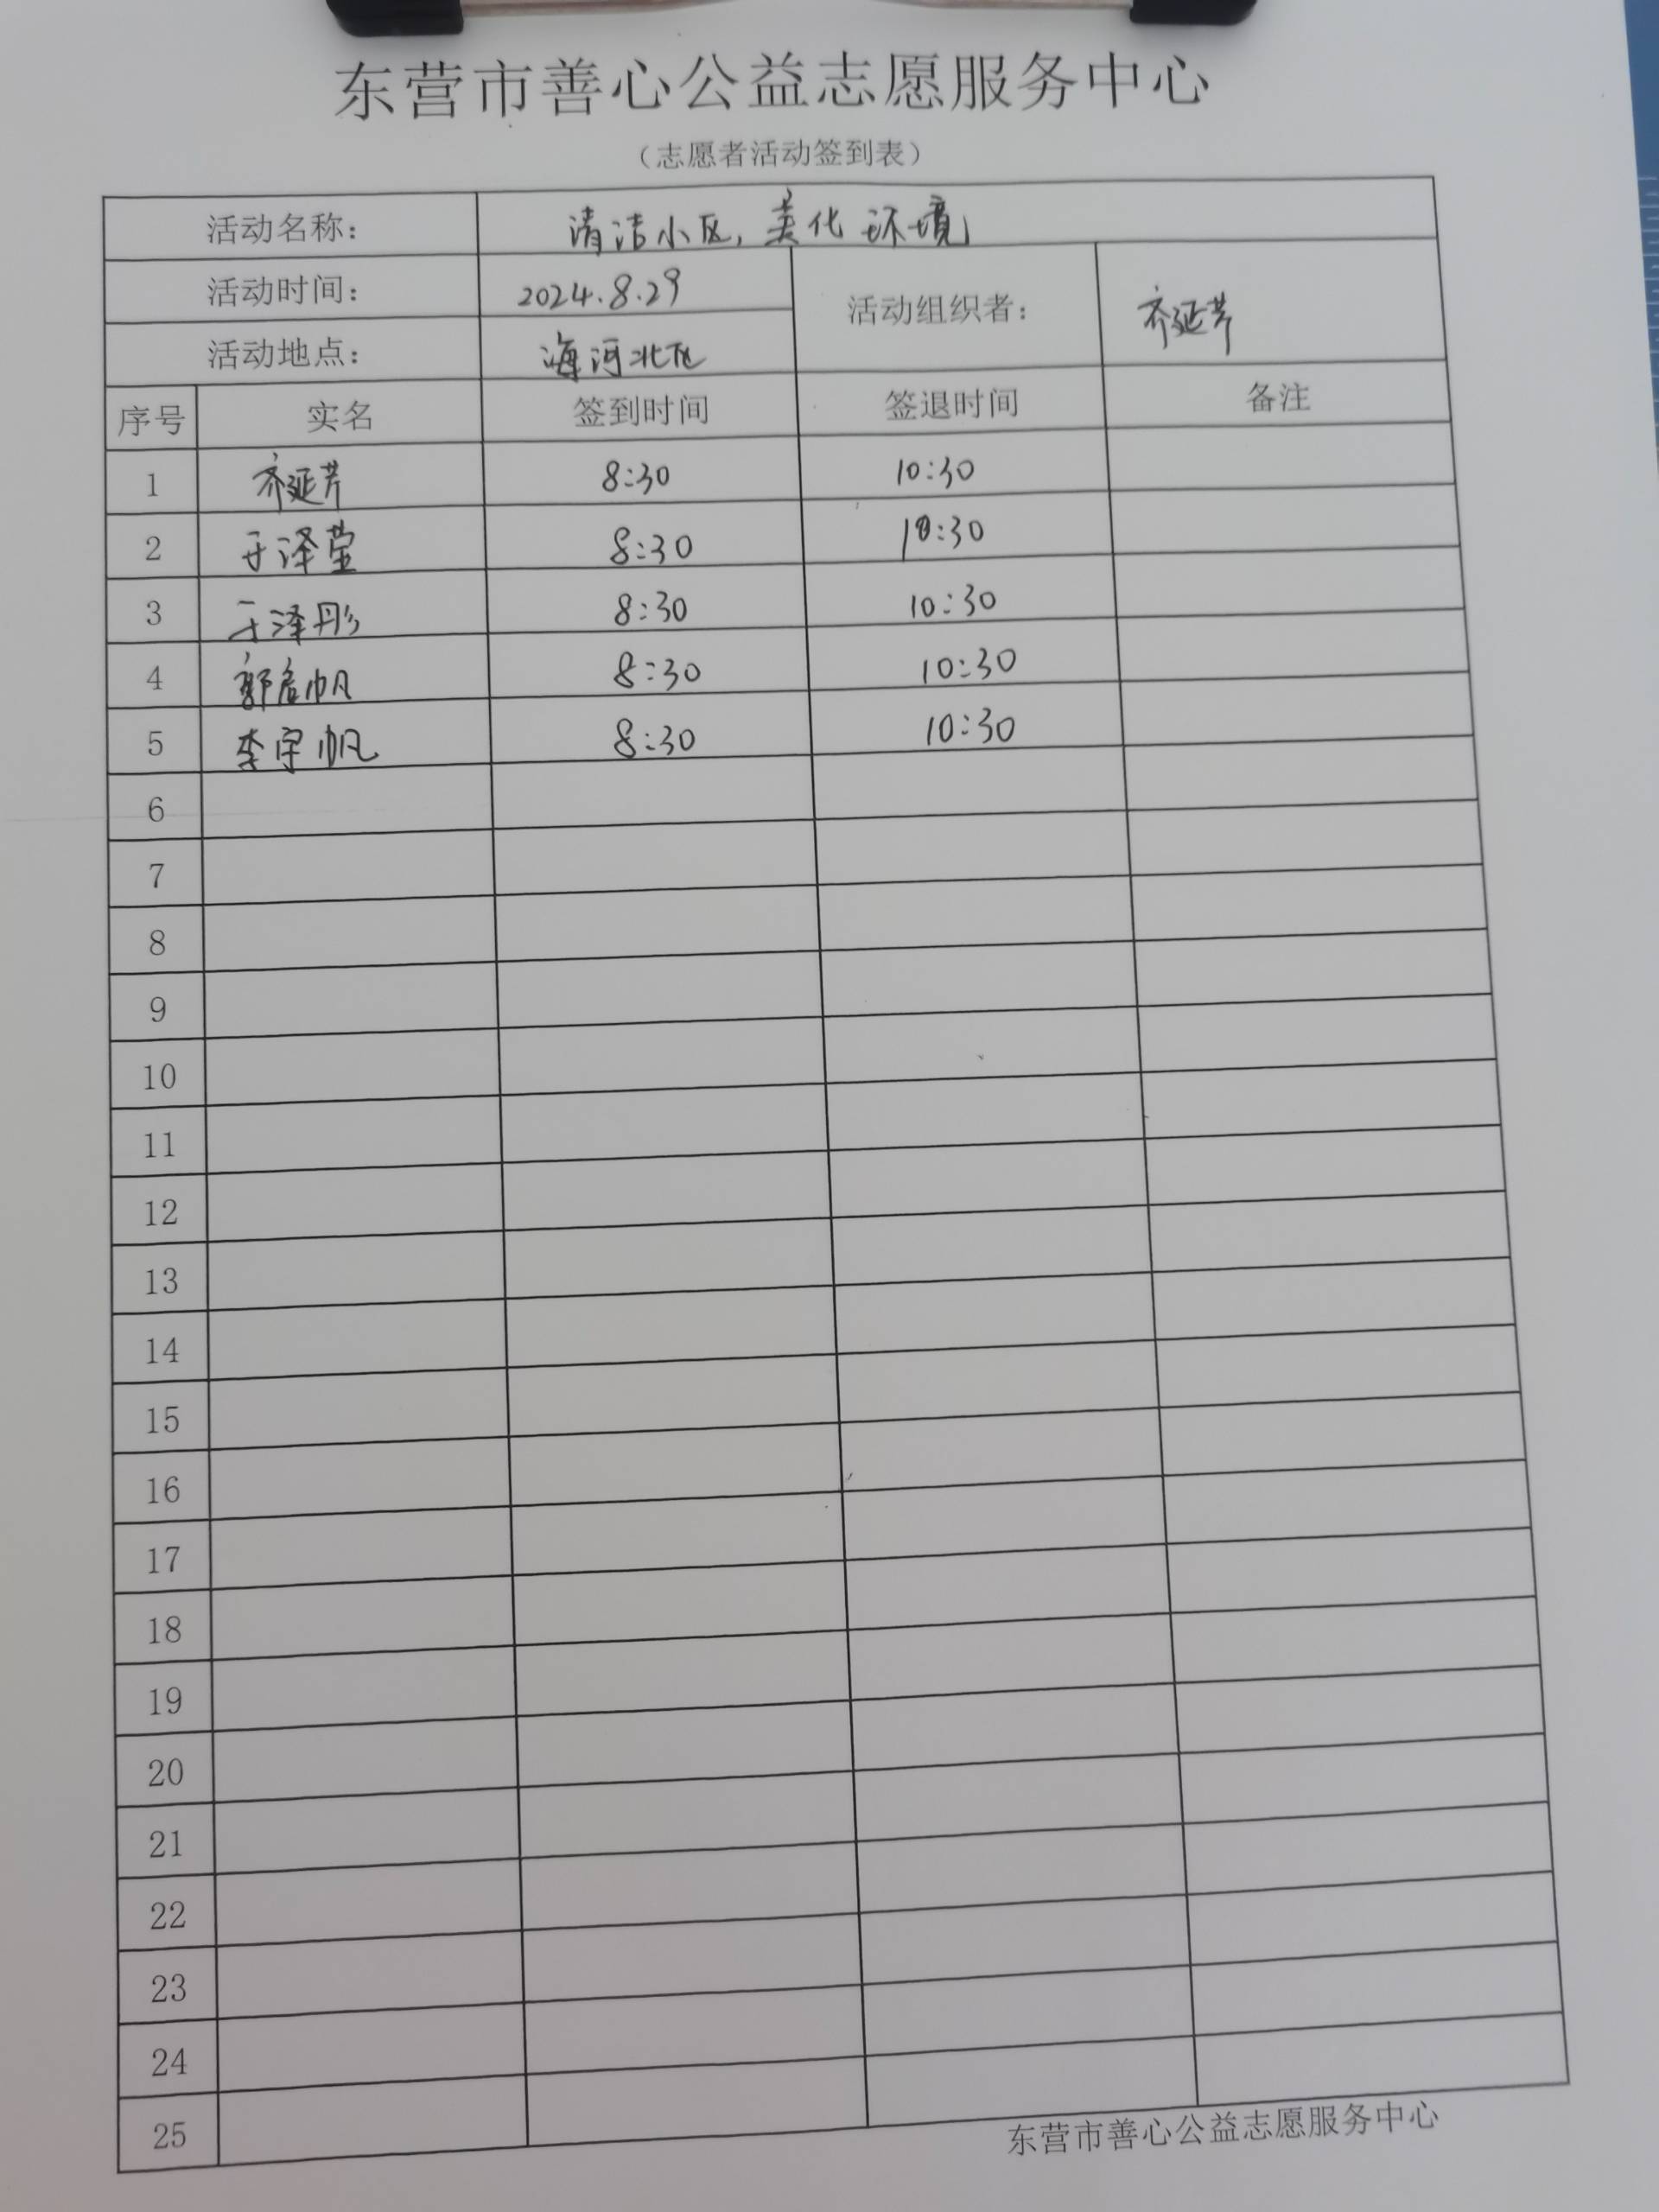 东营市善心公益志愿服务中心
（志愿者活动签到表）
活动名称： 清洁小区，美化环境
活动时间： 2024.8.29 活动组织者： 齐延芹
活动地点： 海河北区
序号 实名 签到时间 签退时间 备注
1 齐延芹 8:30 10:30
2 于泽莹 8:30 10:30
3 于泽彤 8:30 10:30
4 郭 帆 8:30 10:30
5 李宇帆 8:30 10:30
6
7
8
9
10
11
12
13
14
15
16
17
18
19
20
21
22
23
24
25
东营市善心公益志愿服务中心